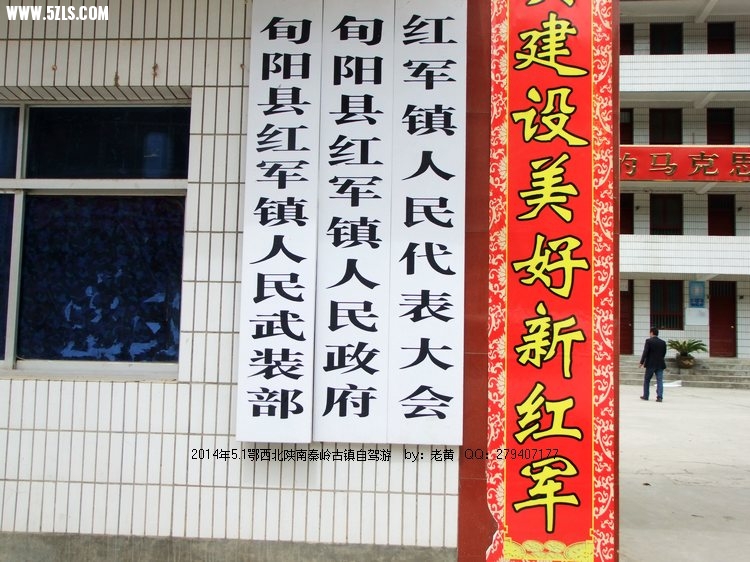 WWW.5ZLS.COM
红军镇人民代表大会
旬阳县红军镇人民政府
旬阳县红军镇人民武装部
建设美好新红军
马克思
2014年5.1鄂西北陕南秦岭古镇自驾游 by：老黄 QQ：279407177